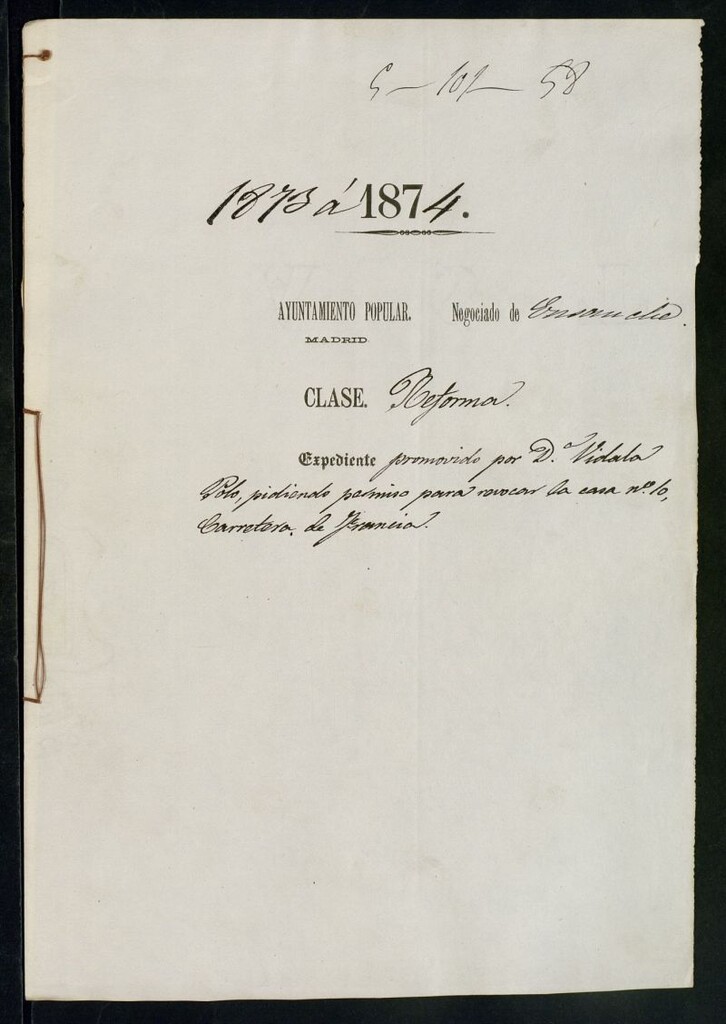 5-101-58
1873 á 1874.
AYUNTAMIENTO POPULAR. Negociado de Ensanche.
MADRID.
CLASE. Reforma.
Expediente promovido por D.ª Vidala
Polo, pidiendo permiso para revocar la casa nº 10,
Carretera de Francia.